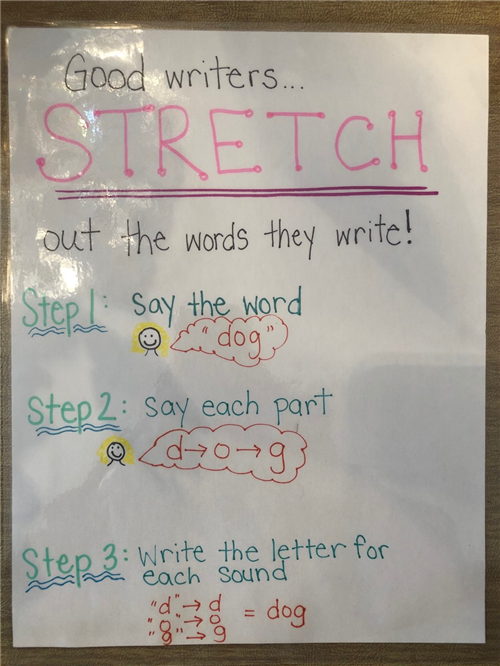 Good writers...
STRETCH
out the words they write!
Step 1: Say the word
"dog"
Step 2: Say each part
d→o→g
Step 3: Write the letter for
each sound
"d"→d
"o"→o = dog
"g"→g